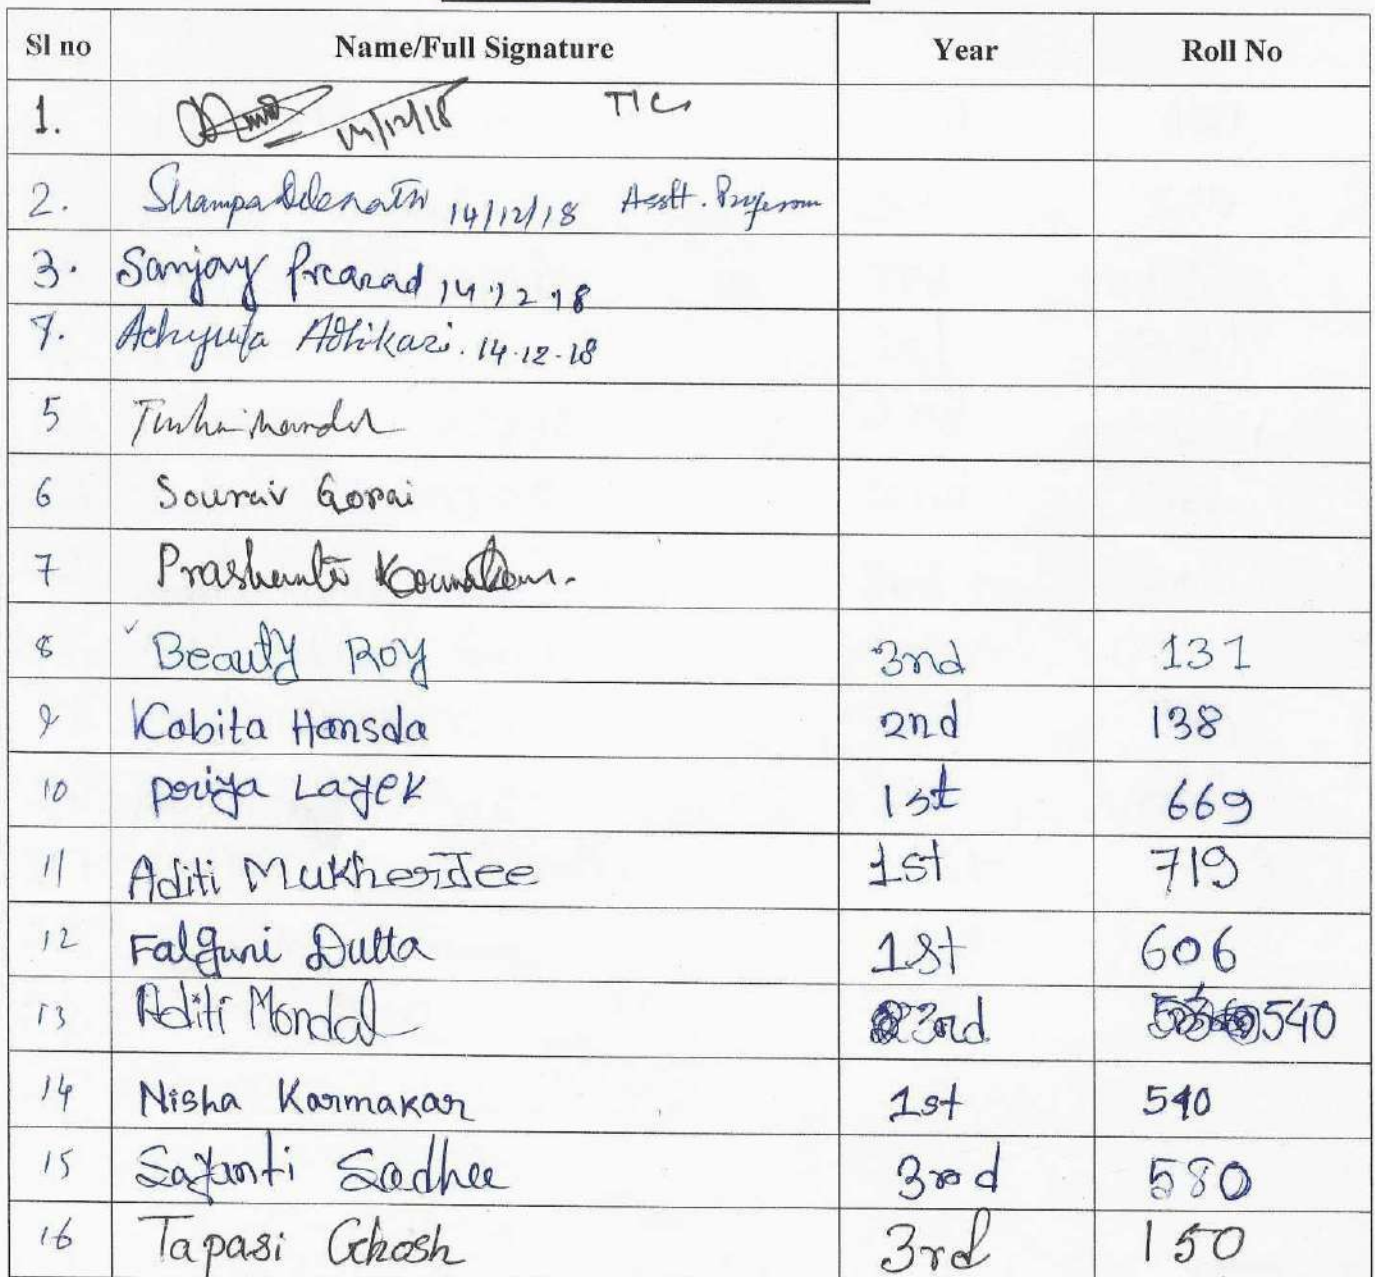 Sl no Name/Full Signature Year Roll No
1. 14/12/18 TIC
2. Shampa Debnath 14/12/18 Asstt. Professor
3. Sanjay Prasad 14.12.18
4. Achyuta Adhikari. 14.12.18
5
6 Sourav Gorai
7 Prashanta
8 Beauty Roy 3nd 131
9 Kabita Hansda 2nd 138
10 Poriya Layek 1st 669
11 Aditi Mukherjee 1st 719
12 Falguni Dutta 1st 606
13 Aditi Mondal 3rd 540
14 Nisha Karmakar 1st 540
15 Sayanti Sadhu 3rd 580
16 Tapasi Ghosh 3rd 150